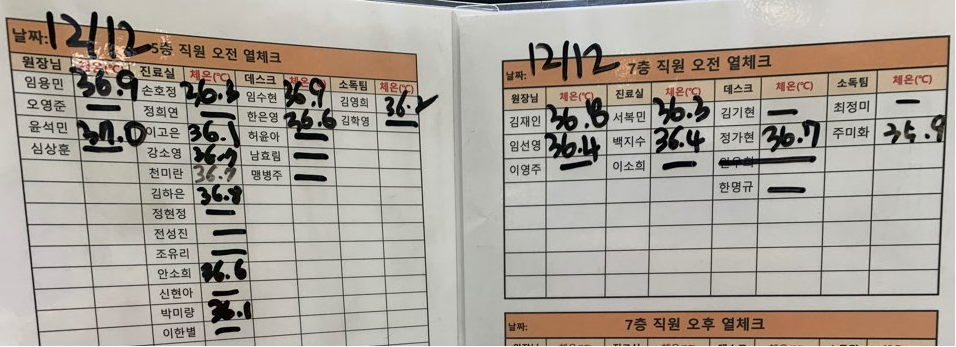 날짜: 12/12
5층 직원 오전 열체크
원장님 체온(℃) 진료실 체온(℃) 데스크 체온(℃) 소독팀 체온(℃)
임용민 36.9 손호정 36.3 임수현 36.9 김영희 36.2
오영준 — 정희연 — 한은영 36.6 김학영 —
윤석민 37.0 이고은 36.1 허윤아 —
심상훈 — 강소영 남효림 —
천미란 36.7 맹병주 —
김하은 36.8
정현정 —
전성진 —
조유리 —
안소희 36.6
신현아 —
박미량 36.1
이한별 —
날짜: 12/12
7층 직원 오전 열체크
원장님 체온(℃) 진료실 체온(℃) 데스크 체온(℃) 소독팀 체온(℃)
김재인 36.8 서복민 36.3 김기현 — 최정미 —
임선영 36.4 백지수 36.4 정가현 36.7 주미화 35.9
이영주 — 이소희 —
한명규 —
날짜:
7층 직원 오후 열체크